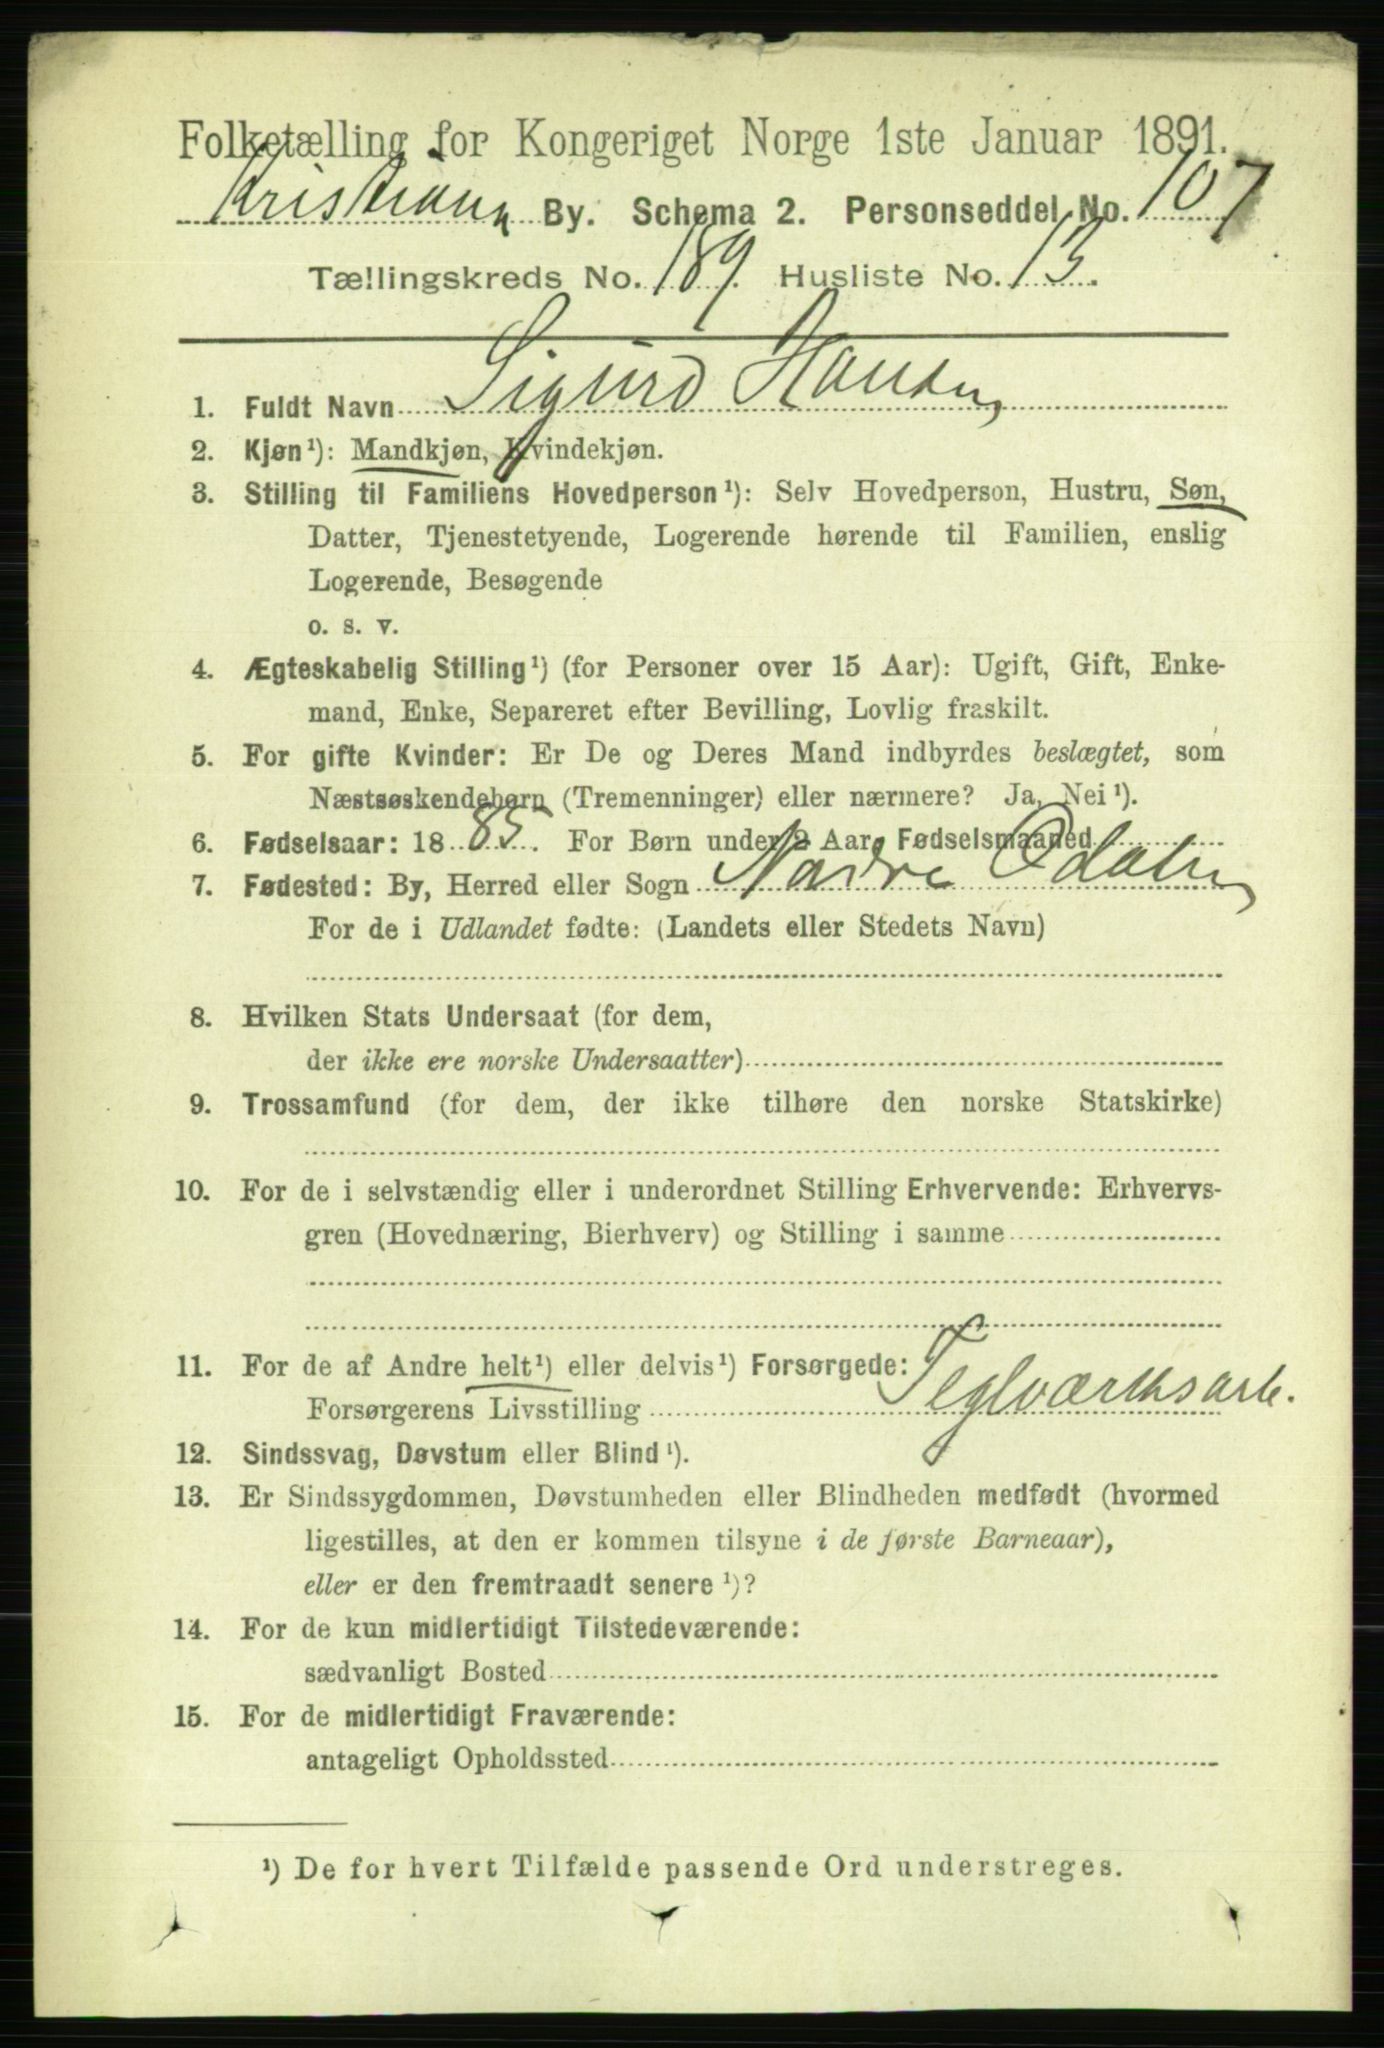 Folketælling for Kongeriget Norge 1ste Januar 1891.
Kristiania By. Schema 2. Personseddel No. 107
Tællingskreds No. 189. Husliste No. 13.
1. Fuldt Navn Sigurd Hansen
2. Kjøn¹): Mandkjøn, Kvindekjøn.
3. Stilling til Familiens Hovedperson¹): Selv Hovedperson, Hustru, Søn,
Datter, Tjenestetyende, Logerende hørende til Familien, enslig
Logerende, Besøgende
o. s. v.
4. Ægteskabelig Stilling¹) (for Personer over 15 Aar): Ugift, Gift, Enke-
mand, Enke, Separeret efter Bevilling, Lovlig fraskilt.
5. For gifte Kvinder: Er De og Deres Mand indbyrdes beslægtet, som
Næstsøskendebørn (Tremenninger) eller nærmere? Ja, Nei¹).
6. Fødselsaar: 1885. For Børn under 2 Aar, Fødselsmaaned
7. Fødested: By, Herred eller Sogn Nordre Odalen
For de i Udlandet fødte: (Landets eller Stedets Navn)
8. Hvilken Stats Undersaat (for dem,
der ikke ere norske Undersaatter)
9. Trossamfund (for dem, der ikke tilhøre den norske Statskirke)
10. For de i selvstændig eller i underordnet Stilling Erhvervende: Erhvervs-
gren (Hovednæring, Bierhverv) og Stilling i samme
11. For de af Andre helt¹) eller delvis¹) Forsørgede:
Forsørgerens Livsstilling Teglværksarb.
12. Sindssvag, Døvstum eller Blind¹).
13. Er Sindssygdommen, Døvstumheden eller Blindheden medfødt (hvormed
ligestilles, at den er kommen tilsyne i de første Barneaar),
eller er den fremtraadt senere¹)?
14. For de kun midlertidigt Tilstedeværende:
sædvanligt Bosted
15. For de midlertidigt Fraværende:
antageligt Opholdssted
¹) De for hvert Tilfælde passende Ord understreges.